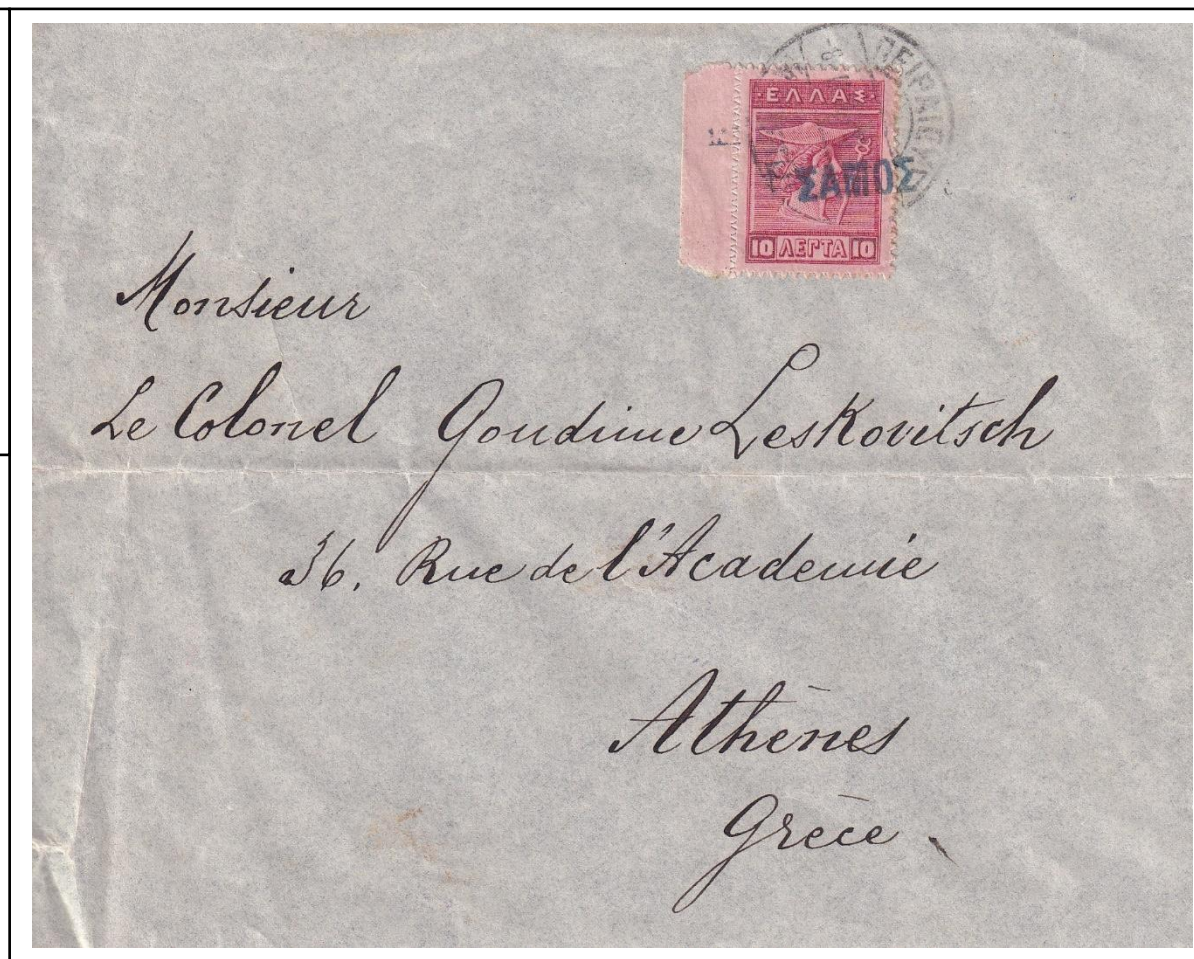 ΠΕΙΡΑΙΕΥΣ
ΕΛΛΑΣ
ΣΑΜΟΣ
10 ΛΕΠΤΑ 10
Monsieur
Le Colonel Goudime Leskovitsch
36, Rue de l'Academie
Athènes
Grèce